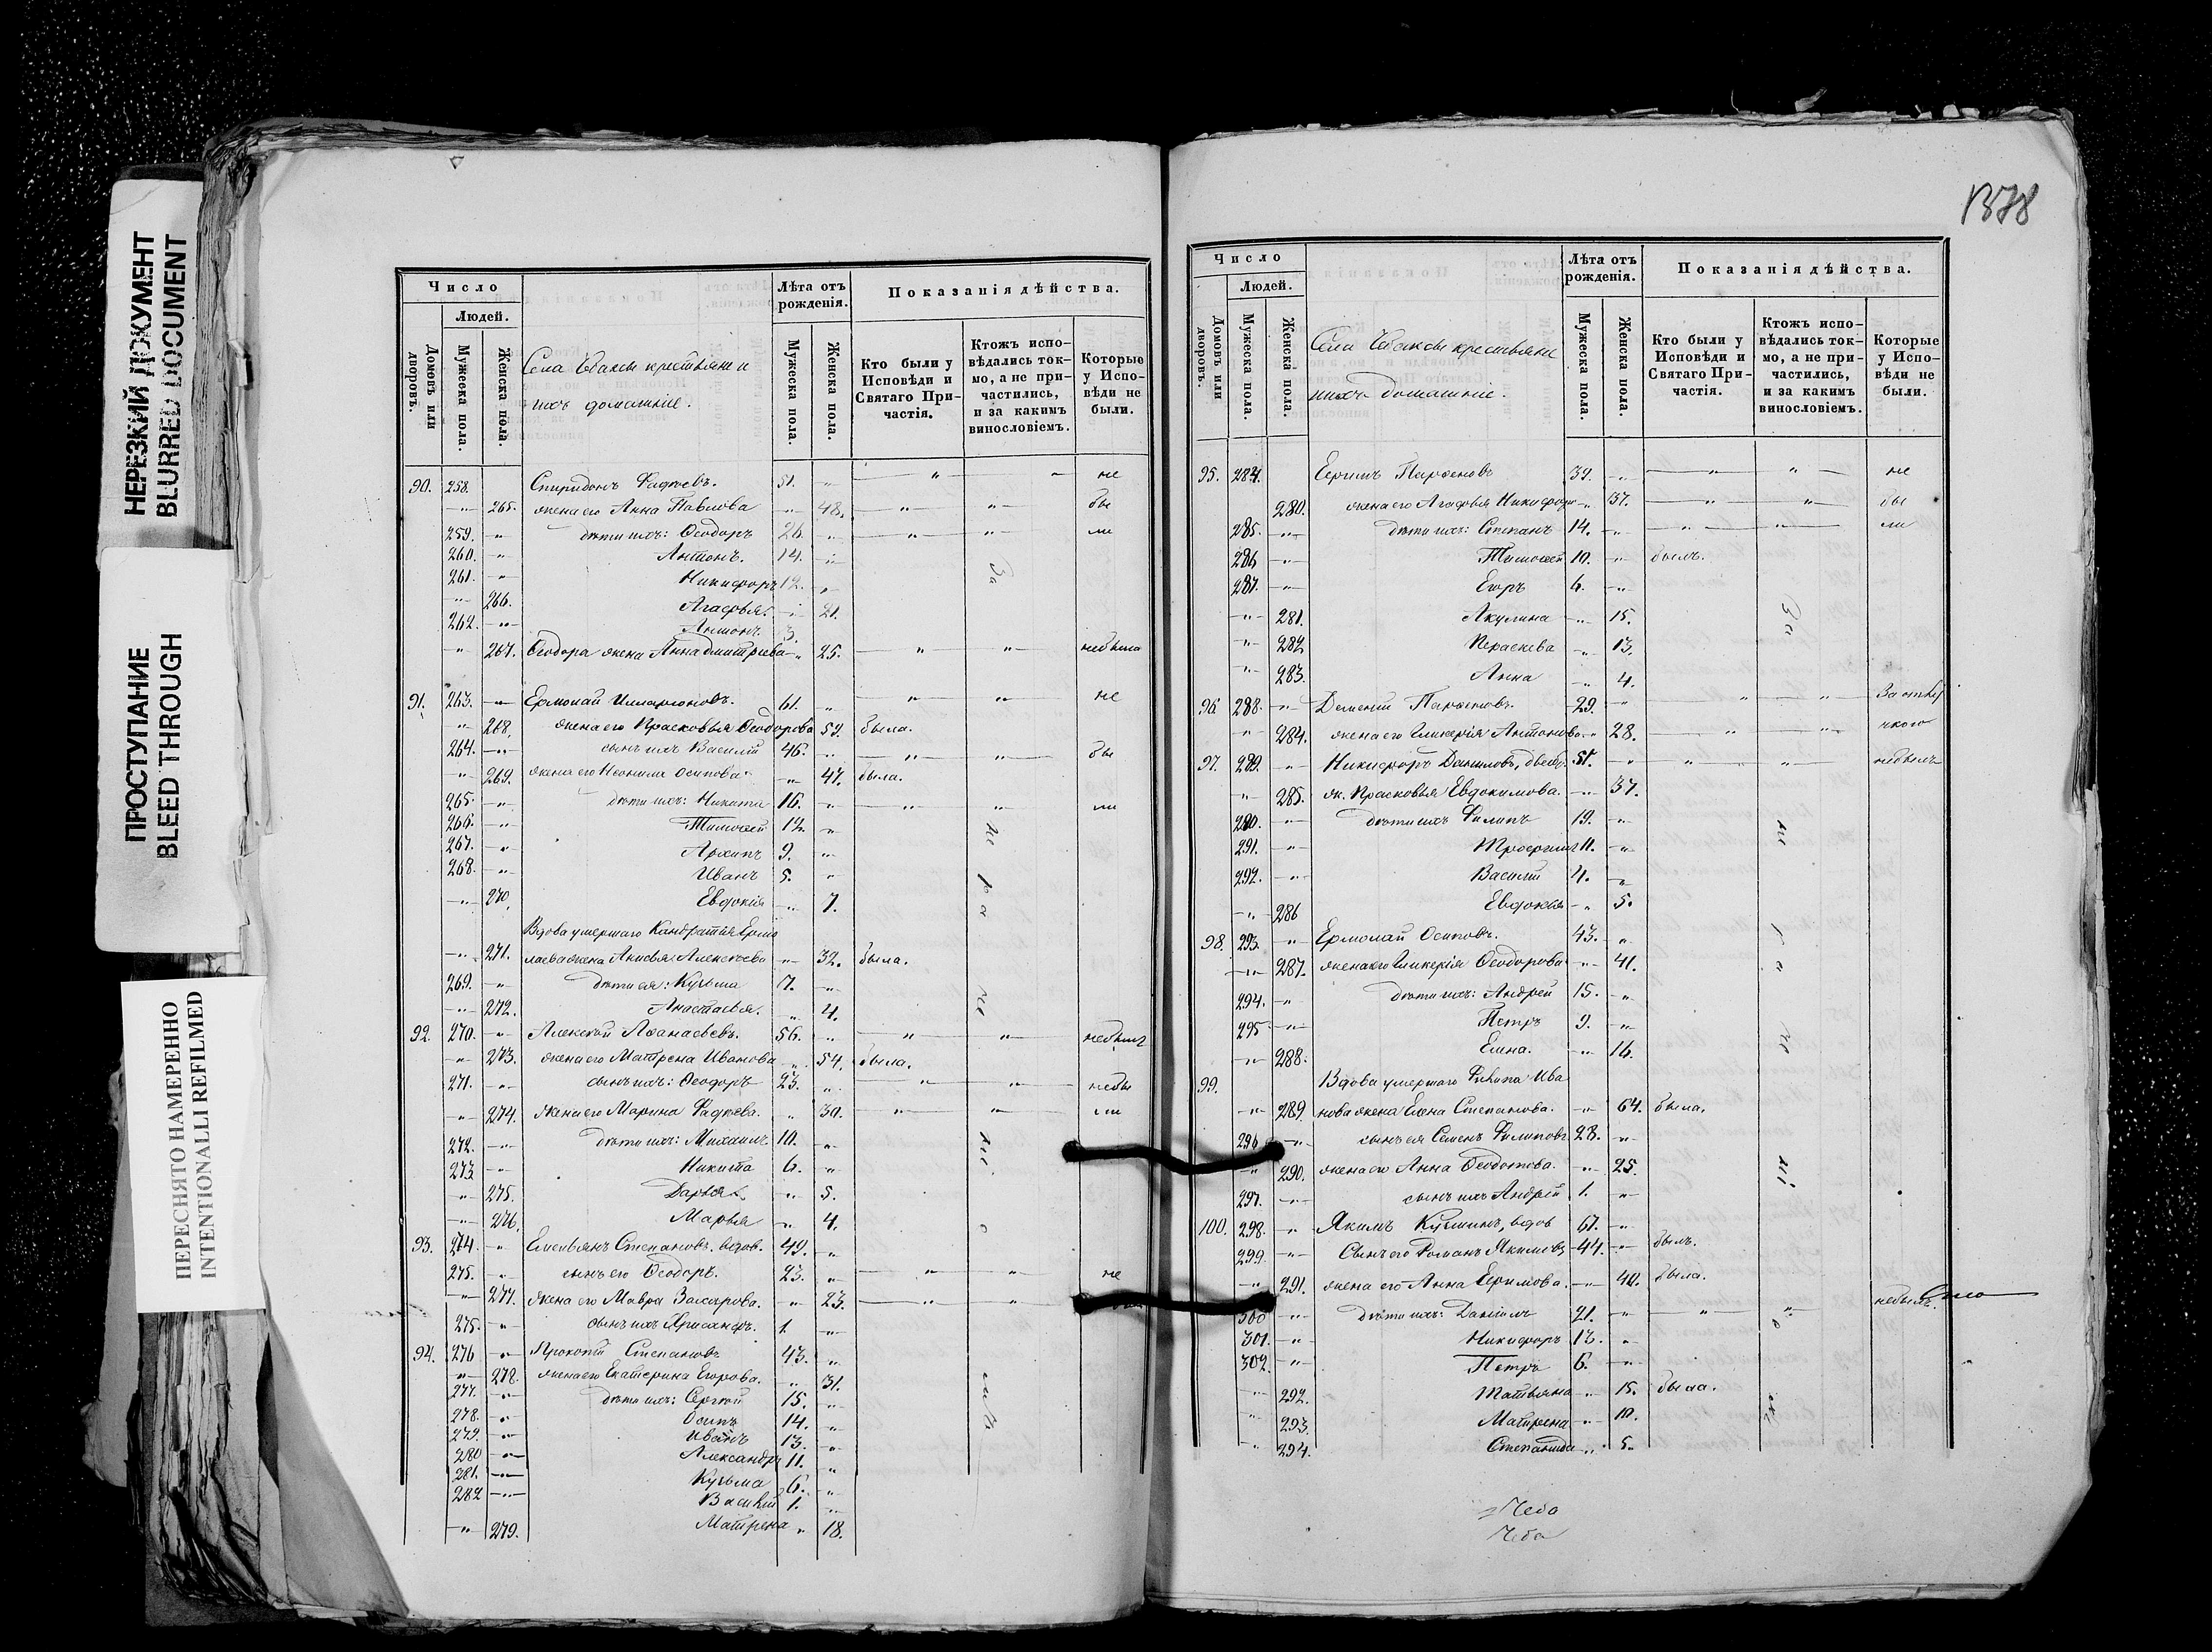 НЕРЕЗКИЙ ДОКУМЕНТ
BLURRED DOCUMENT
ПРОСТУПАНИЕ
BLEED THROUGH
ПЕРЕСНЯТО НАМЕРЕННО
INTENTIONALLI REFILMED
Число
Людей.
Домовъ или дворовъ.
Мужеска пола.
Женска пола.
Села крестьяне и
ихъ домашніе.
Лѣта отъ рожденія.
Мужеска пола.
Женска пола.
Показанія дѣйства.
Кто были у Исповѣди и Святаго Причастія.
Ктожъ исповѣдались токмо, а не причастились, и за какимъ винословіемъ.
Которые у Исповѣди не были.
90. 258. Спиридонъ Фадѣевъ. 51. " — " — " — не
" 265. жена его Анна Павлова " 48. " " бы
259. " дѣти ихъ: Ѳеодоръ 26. " " " ли
260. " Антонъ. 14. "
261. " Никифоръ 12. " За
" 266. Агафья. " 21.
262. " Антонъ. 3.
" 267. Ѳеодора жена Анна Дмитріева " 25. " "
91. 263. " Ермолай Иларіоновъ. 61. " " " не
" 268. жена его Прасковья Ѳеодорова 59. была.
264. " сынъ ихъ Василій 46. " " " бы
" 269. жена его Неонила Осипова " 47. была.
265. " дѣти ихъ: Никита 16. " " " ли
266. " Тимоѳей 12. "
267. " Архипъ 9. "
268. " Иванъ 5. "
" 270. Евдокія " 7.
Вдова умершаго Кандратія Ермо
" 271. лаева жена Анисья Алексѣева " 32. была.
269. " дѣти ея: Кузьма 7. "
" 272. Анастасья. " 4.
92. 270. " Алексѣй Аѳанасьевъ. 56. " " " небылъ
" 273. жена его Матрена Иванова " 54. была.
271. " сынъ ихъ: Ѳеодоръ 23. " " " небы
" 274. жена его Марина Фадѣева. " 30. " " ли
272. " дѣти ихъ: Михаилъ 10. "
273. " Никита 6. "
" 275. Дарья " 5.
" 276. Марья " 4.
93. 274. " Емельянъ Степановъ. вдов. 49. "
275. " сынъ его Ѳеодоръ. 23. " " " не
" 277. жена его Мавра Захарова. " 23. " "
275. " сынъ ихъ 1. "
94. 276 " Прокопій Степановъ 43. "
" 278. жена его Екатерина Егорова. " 31.
277. " дѣти ихъ: Сергѣй 15. "
278. " Осипъ 14. "
279. " Иванъ 13. "
280 " Александръ 11. "
281. " Кузьма 6. "
282 " Василій 1. "
" 279. Матрена " 18.
1378
Число
Людей.
Домовъ или дворовъ.
Мужеска пола.
Женска пола.
Села крестьяне
и ихъ домашніе.
Лѣта отъ рожденія.
Мужеска пола.
Женска пола.
Показанія дѣйства.
Кто были у Исповѣди и Святаго Причастія.
Ктожъ исповѣдались токмо, а не причастились, и за какимъ винословіемъ.
Которые у Исповѣди не были.
95. 284. Ефимъ Парѳеновъ 39. " " " не
280. жена его Агафья Никифоро " 37. " " бы
285. " дѣти ихъ: Степанъ 14. " " " ли
286 " Тимоѳей 10. " былъ.
287. " Егоръ 6. "
" 281. Акулина " 15. За
" 282 Параскева " 13.
" 283. Анна " 4.
96 288. " Дементій Парѳеновъ. 29. " " "
" 284. жена его Гликерія Антонова. " 28. " "
97. 289. " Никифоръ Даниловъ, 51. " " " небылъ
" 285. ж. Прасковья Евдокимова. " 37.
290. " дѣти ихъ Филипъ 19. "
291. " Трофимъ 11. "
292. " Василій 4. "
" 286 Евдокія " 5.
98. 293. " Ермолай Осиповъ. 43. "
" 287. жена его Гликерія Ѳеодорова " 41.
294. " дѣти ихъ: Андрей 15. "
295 " Петръ 9. "
" 288. Елена. " 16.
99. Вдова умершаго Филипа Ива
" 289 нова жена Елена Степанова. " 64. была.
296 " сынъ ея Семенъ Филиповъ 28. "
" 290. жена его Анна Ѳеодотова. " 25.
297. " сынъ ихъ Андрей 1. "
100. 298. " Якимъ Кузминъ, вдов 67. "
299 " Сынъ его Романъ Якимовъ 44. " былъ.
" 291. жена его Анна Ефимова. " 40. была.
300 " дѣти ихъ: Даніилъ 21. " " " небылъ.
301. " Никифоръ 13. "
302. " Петръ 6. "
" 292. Татьяна " 15. была.
" 293. Матрена " 10.
" 294. Степанида " 5.